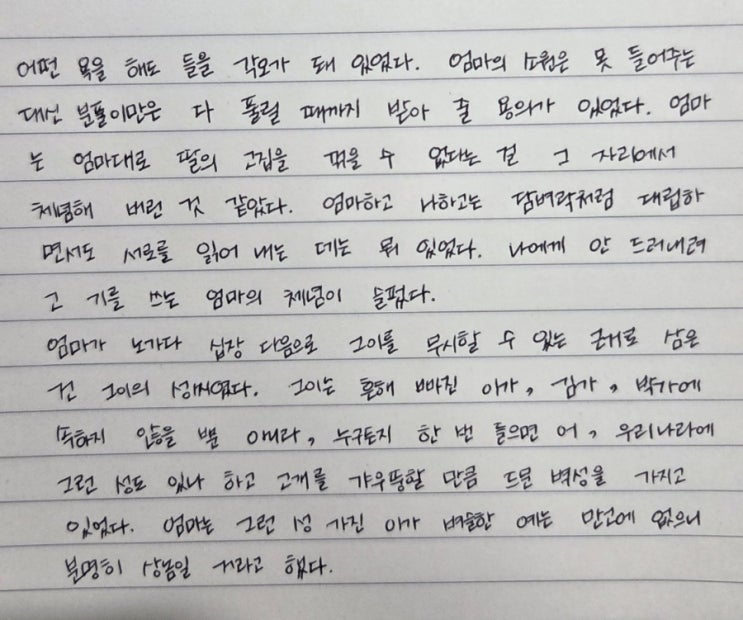 어떤 욕을 해도 들을 각오가 돼 있었다. 엄마의 소원은 못 들어주는
대신 분풀이만은 다 풀릴 때까지 받아 줄 용의가 있었다. 엄마
는 엄마대로 딸의 고집을 꺾을 수 없다는 걸 그 자리에서
체념해 버린 것 같았다. 엄마하고 나하고는 담벼락처럼 대립하
면서도 서로를 읽어 내는 데는 뭐 있었다. 나에게 안 드러내려
고 기를 쓰는 엄마의 체념이 슬펐다.
엄마가 노가다 십장 다음으로 그이를 무시할 수 있는 근거로 삼은
건 그이의 성씨였다. 그이는 흔해 빠진 이가, 김가, 박가에
속하지 않을 뿐 아니라, 누구든지 한 번 들으면 어, 우리나라에
그런 성도 있나 하고 고개를 갸우뚱할 만큼 드문 벽성을 가지고
있었다. 엄마는 그런 성 가진 이가 벼슬한 예는 만고에 없으니
분명히 상놈일 거라고 했다.